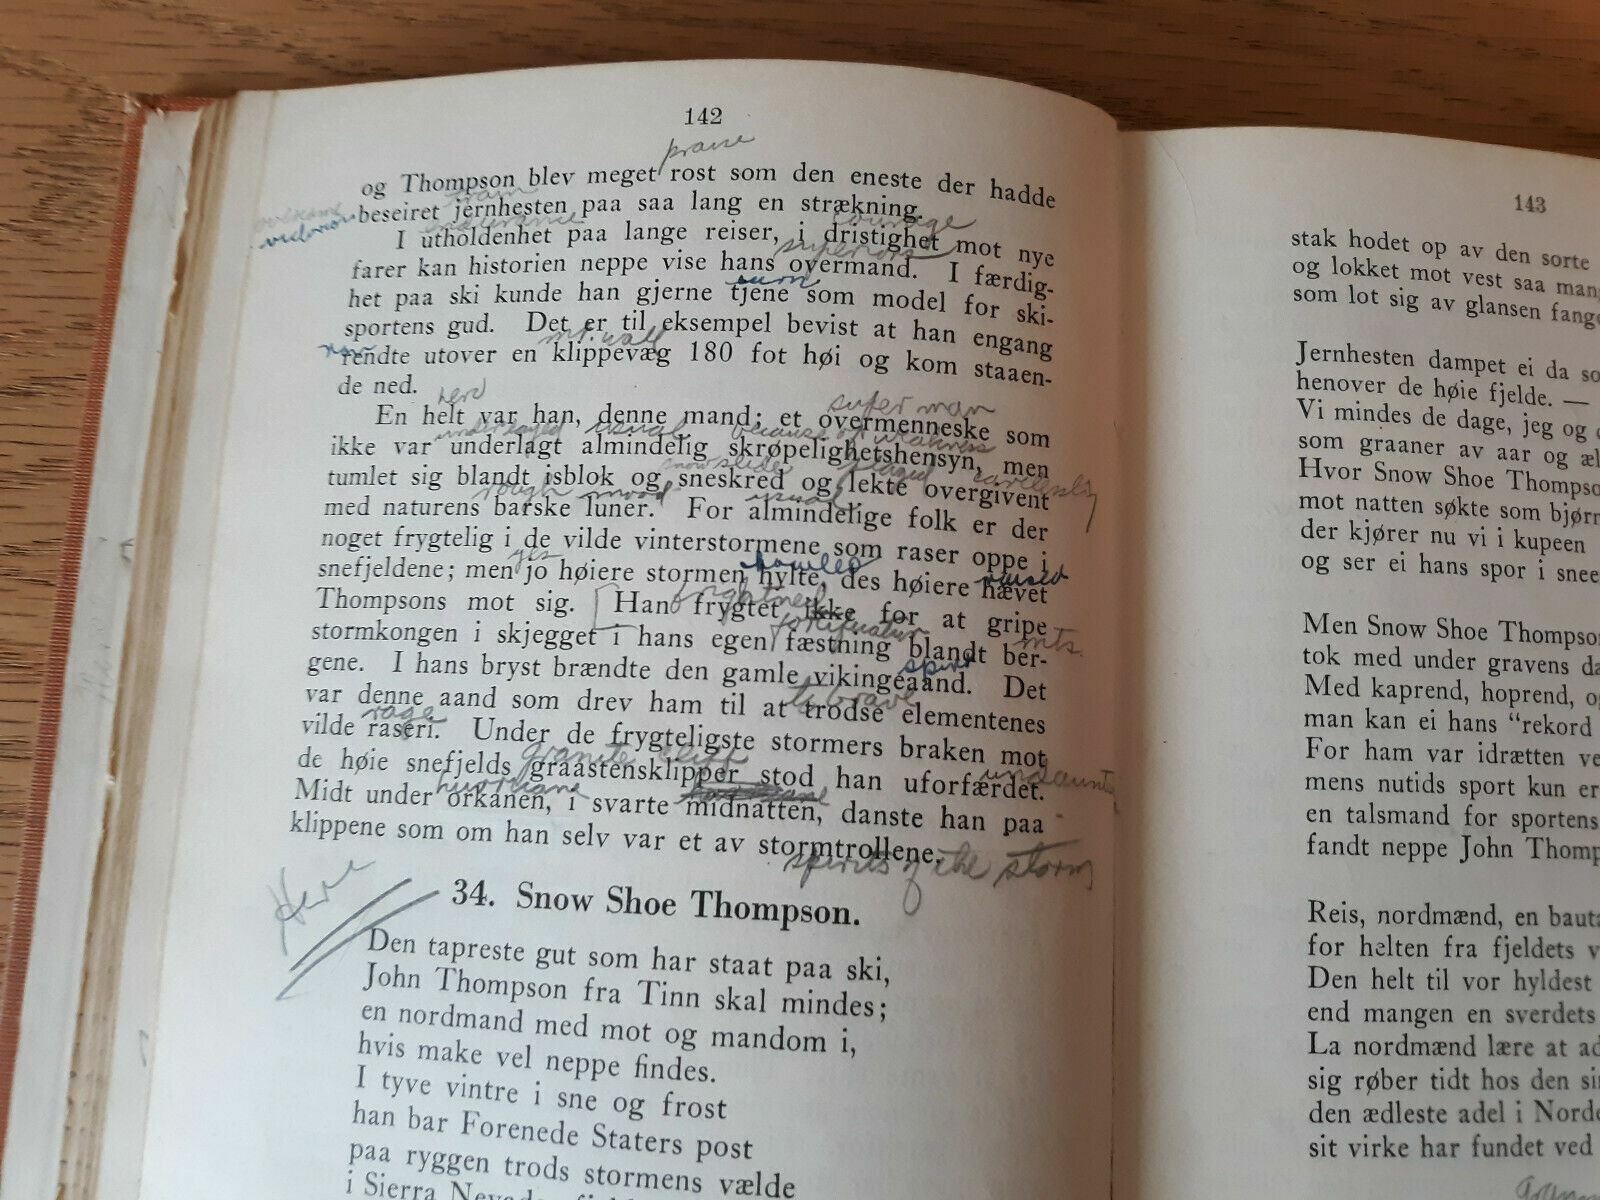 142
praise
og Thompson blev meget rost som den eneste der hadde
train
beseiret jernhesten paa saa lang en strækning.
endurance courage
I utholdenhet paa lange reiser, i dristighet mot nye
superiors
farer kan historien neppe vise hans overmand. I færdig-
het paa ski kunde han gjerne tjene som model for ski-
sportens gud. Det er til eksempel bevist at han engang
mt. wall
rendte utover en klippevæg 180 fot høi og kom staaen-
de ned.
hero super man
En helt var han, denne mand; et overmenneske som
usual because of weakness
ikke var underlagt almindelig skrøpelighetshensyn, men
snowslides played carelessly
tumlet sig blandt isblok og sneskred og lekte overgivent
rough mood usual
med naturens barske luner. For almindelige folk er der
noget frygtelig i de vilde vinterstormene som raser oppe i
yes howled raised
snefjeldene; men jo høiere stormen hylte, des høiere hævet
frightned
Thompsons mot sig. Han frygtet ikke for at gripe
fortification mts.
stormkongen i skjegget i hans egen fæstning blandt ber-
spirit
gene. I hans bryst brændte den gamle vikingeaand. Det
to brave
var denne aand som drev ham til at trodse elementenes
rage
vilde raseri. Under de frygteligste stormers braken mot
granite cliff
de høie snefjelds graastensklipper stod han uforfærdet.
hurricane
Midt under orkanen, i svarte midnatten, danste han paa
klippene som om han selv var et av stormtrollene.
spirits of the storm
Here
34. Snow Shoe Thompson.
Den tapreste gut som har staat paa ski,
John Thompson fra Tinn skal mindes;
en nordmand med mot og mandom i,
hvis make vel neppe findes.
I tyve vintre i sne og frost
han bar Forenede Staters post
paa ryggen trods stormens vælde
i Sierra
143
stak hodet op av den sorte
og lokket mot vest saa
som lot sig av glansen
Jernhesten dampet ei da
henover de høie fjelde. —
Vi mindes de dage, jeg og
som graaner av aar og
Hvor Snow Shoe
mot natten søkte som
der kjører nu vi i kupeen
og ser ei hans spor i
Men Snow Shoe
tok med under gravens
Med kaprend, hoprend,
man kan ei hans "rekord
For ham var idrætten
mens nutids sport kun
en talsmand for
fandt neppe John
Reis, nordmænd, en
for helten fra fjeldets
Den helt til vor hyldest
end mangen en sverdets
La nordmænd lære at
sig røber tidt hos den
den ædleste adel i
sit virke har fundet ved